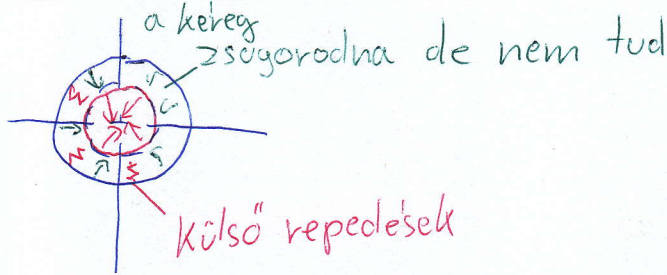 a kéreg
zsugorodna de nem tud
külső repedések